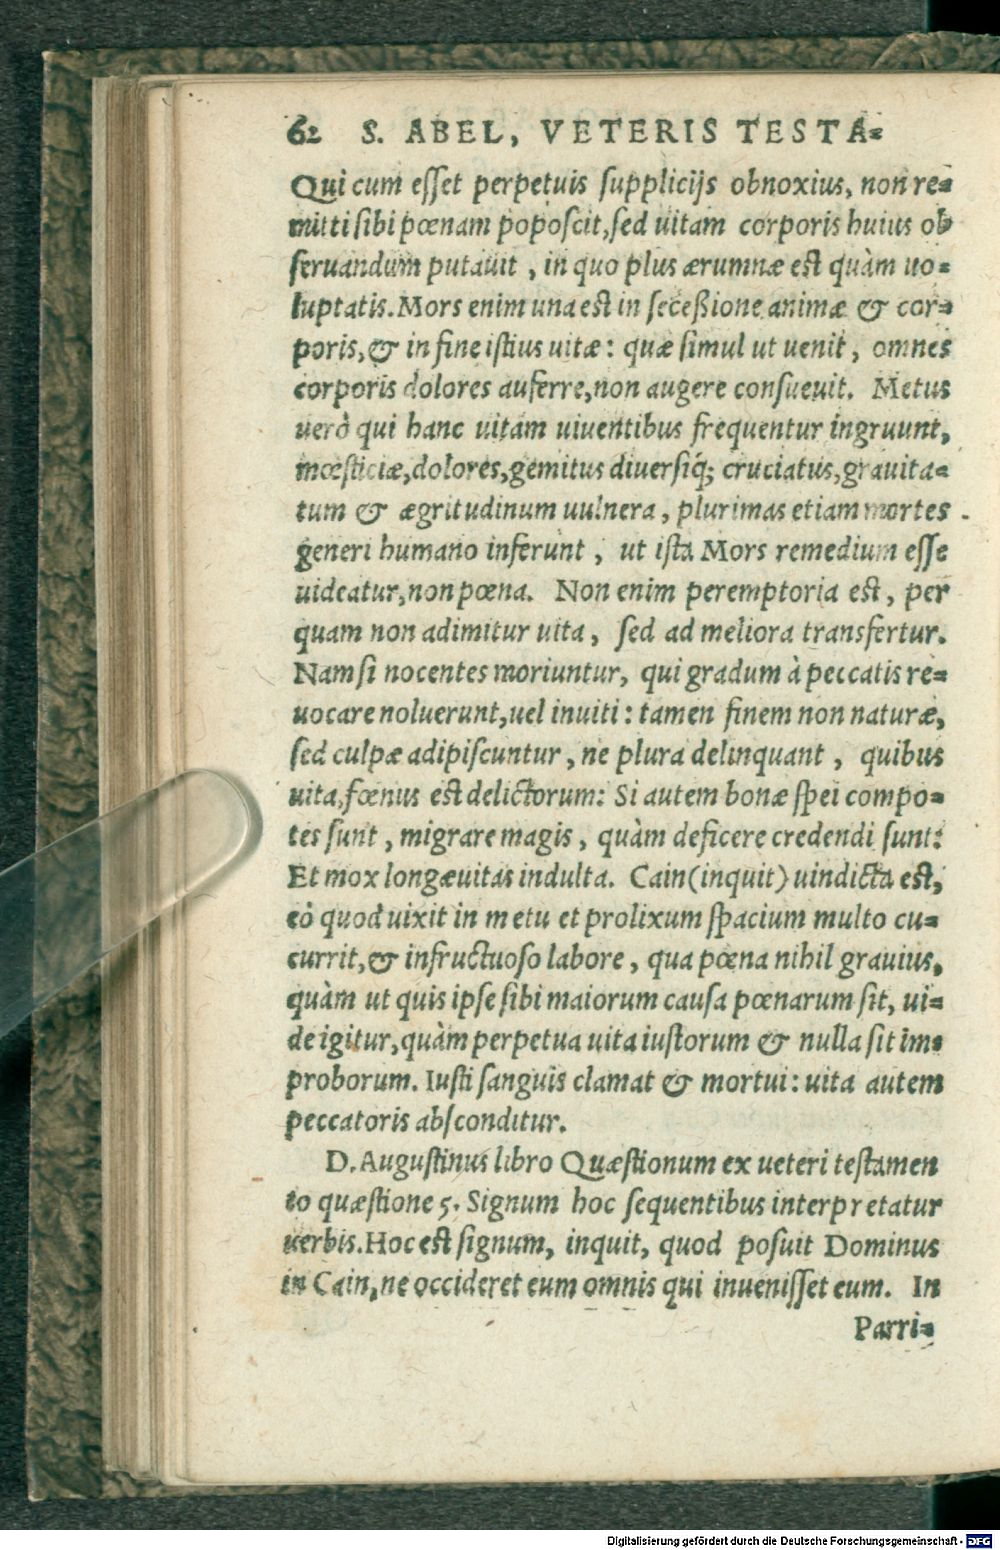 62 S. ABEL, VETERIS TESTA=
Qui cum eſſet perpetuis ſupplicijs obnoxius, non re=
mitti ſibi pœnam popoſcit, ſed uitam corporis huius ob
ſeruandum putauit, in quo plus ærumnæ eſt quàm uo=
luptatis. Mors enim una eſt in ſeceßione animæ & cor=
poris, & in fine iſtius uitæ: quæ ſimul ut uenit, omnes
corporis dolores auferre, non augere conſueuit. Metus
uerò qui hanc uitam uiuentibus frequentur ingruunt,
mœſticiæ, dolores, gemitus diuerſiq́; cruciatus, grauita=
tum & ægritudinum uulnera, plurimas etiam mortes
generi humano inferunt, ut iſta Mors remedium eſſe
uideatur, non pœna. Non enim peremptoria eſt, per
quam non adimitur uita, ſed ad meliora transfertur.
Nam ſi nocentes moriuntur, qui gradum à peccatis re=
uocare noluerunt, uel inuiti: tamen finem non naturæ,
ſed culpæ adipiſcuntur, ne plura delinquant, quibus
uita, fœnus eſt delictorum: Si autem bonæ ſpei compo=
tes ſunt, migrare magis, quàm deficere credendi ſunt:
Et mox longæuitas indulta. Cain (inquit) uindicta eſt,
eò quod uixit in metu et prolixum ſpacium multo cu=
currit, & infructuoſo labore, qua pœna nihil grauius,
quàm ut quis ipſe ſibi maiorum cauſa pœnarum ſit, ui=
de igitur, quàm perpetua uita iuſtorum & nulla ſit im=
proborum. Iuſti ſanguis clamat & mortui: uita autem
peccatoris abſconditur.
D. Auguſtinus libro Quæſtionum ex ueteri teſtamen
to quæſtione 5. Signum hoc ſequentibus interpretatur
uerbis. Hoc eſt ſignum, inquit, quod poſuit Dominus
in Cain, ne occideret eum omnis qui inueniſſet eum. In
Parri=
Digitalisierung gefördert durch die Deutsche Forschungsgemeinschaft - DFG